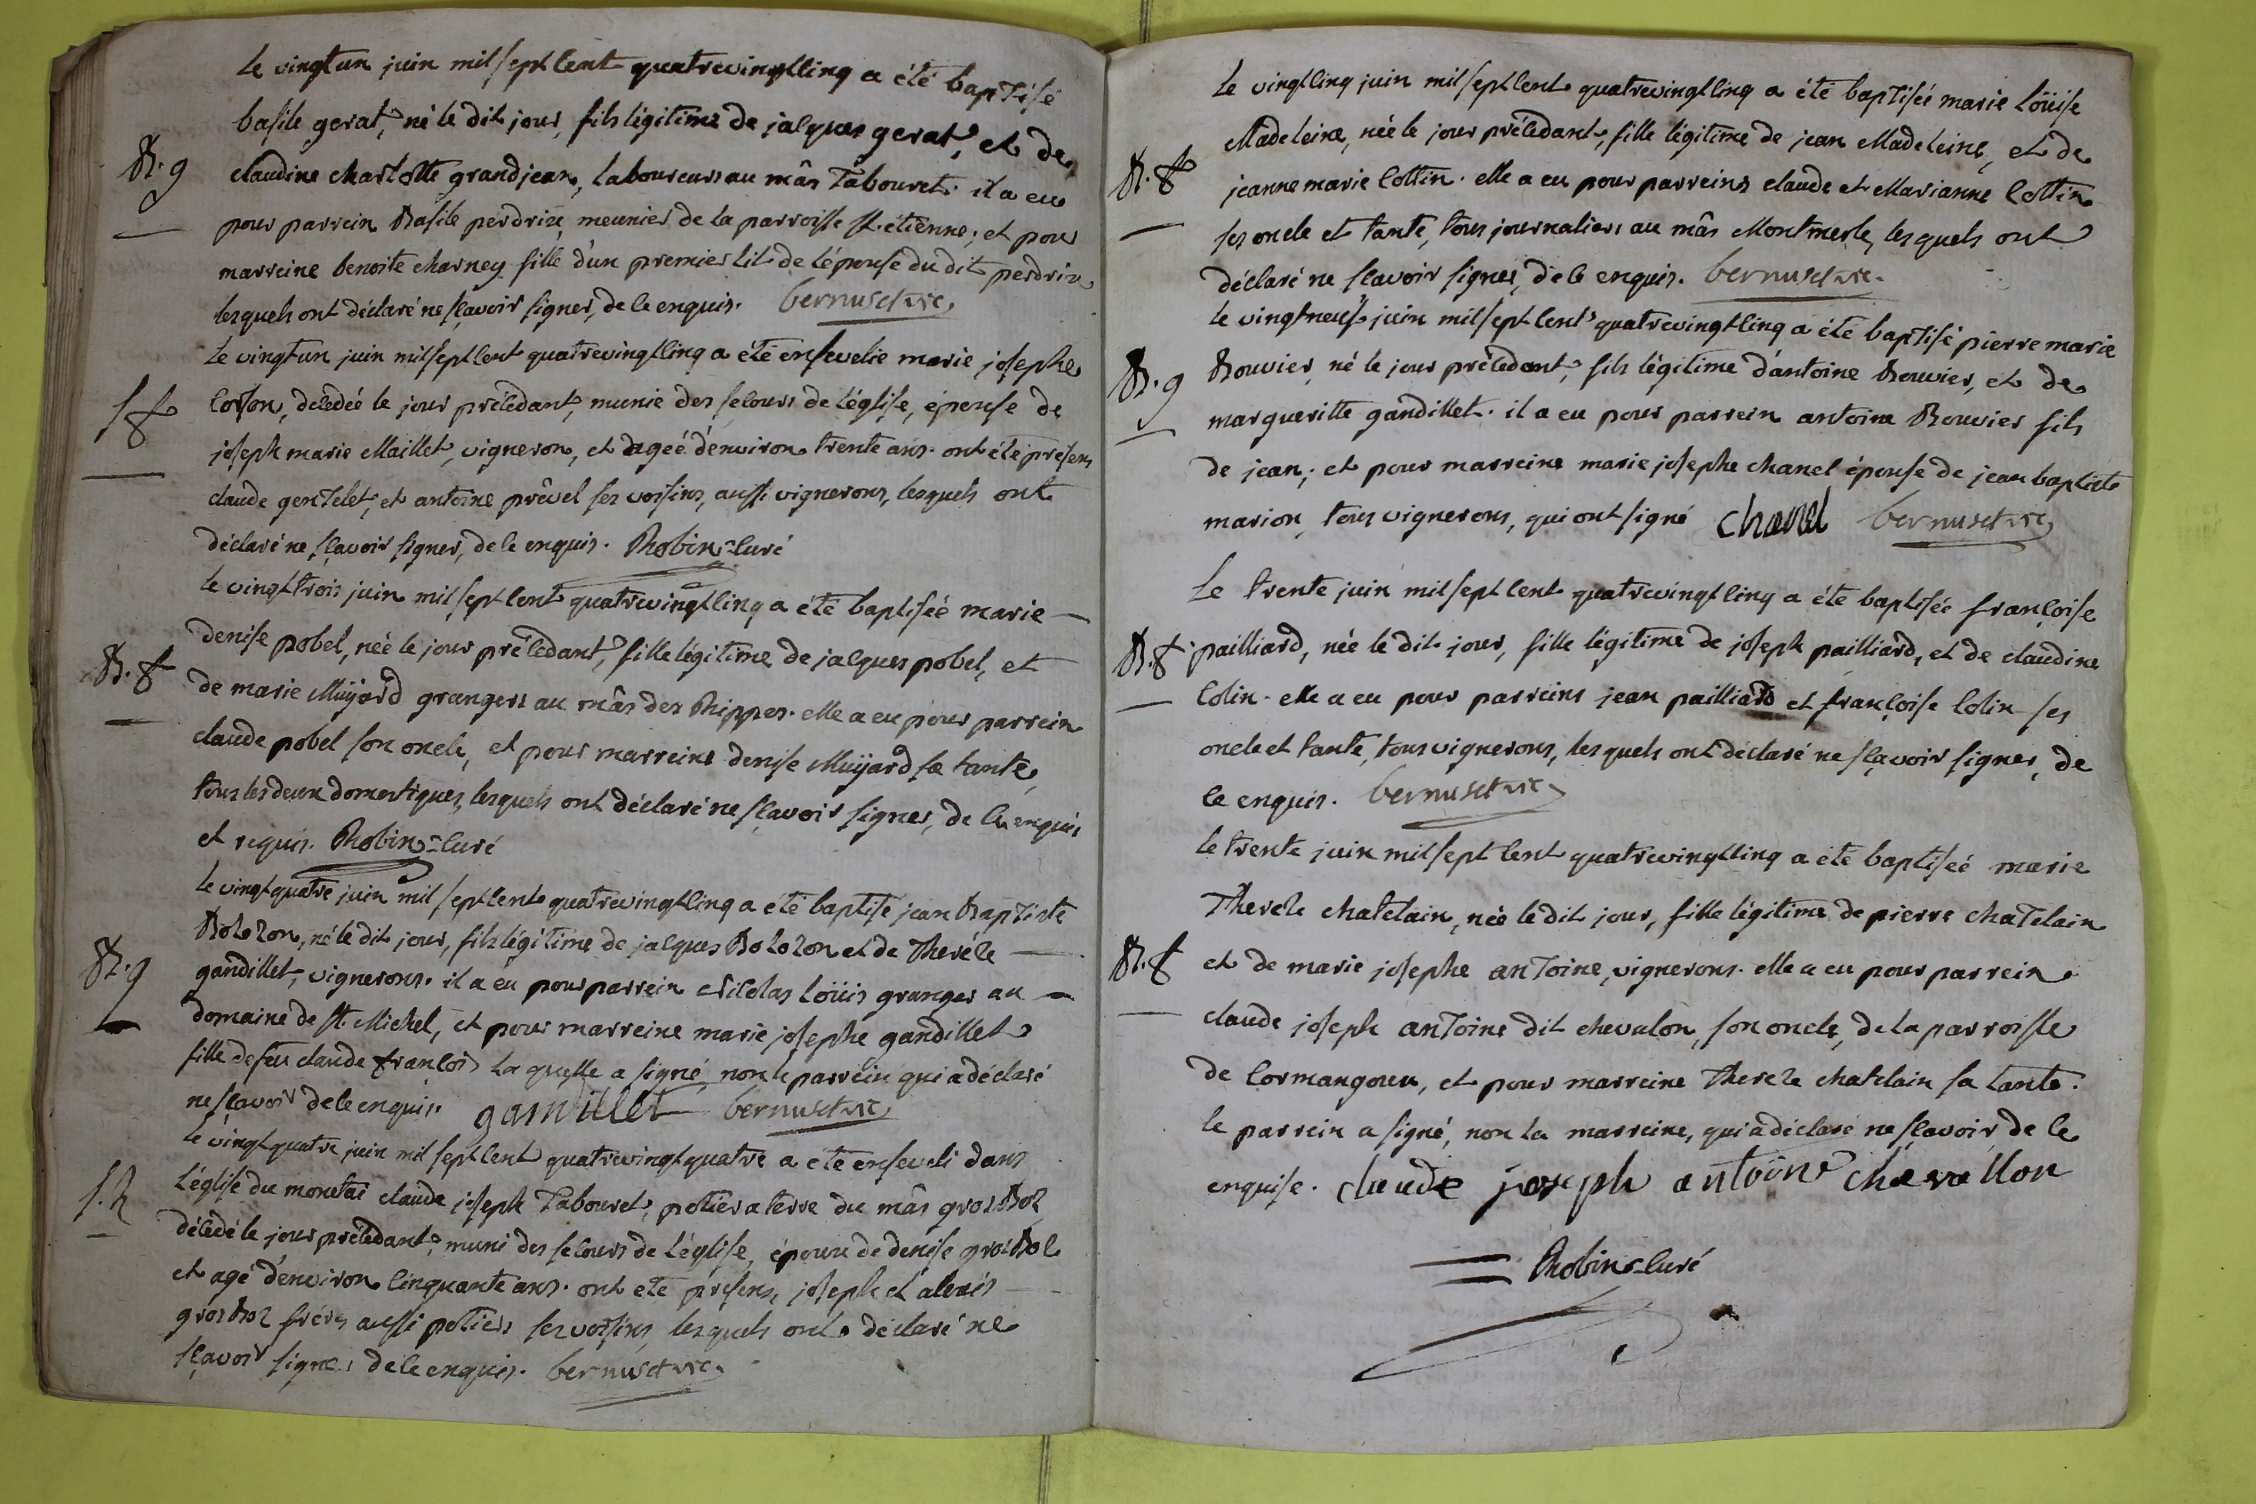 Le vingt un juin mil sept cent quatrevingt cinq a été baptisé
B. g
basile gerat, né le dit jour, fils légitime de jacques gerat, et de
claudine charlotte grandjean, laboureurs au mâs Tabouret. il a eu
pour parrein Basile perdrix, meunier de la parroisse St. etienne; et pour
marreine benoite charney fille d'un premier lit de l'épouse du dit perdrix
lesquels ont déclaré ne sçavoir signer, de ce enquis. bernuset vic.
Le vingt un juin mil sept cent quatrevingt cinq a été ensevelie marie josephe
S f
Corton, decedeé le jour précedant, munie des secours de l'église, épouse de
joseph marie Maillet, vigneron, et ageé d'environ trente ans. ont été présens
claude gentelet, et antoine prével ses voisins, aussi vignerons, lesquels ont
déclaré ne sçavoir signer, de ce enquis. Robin-Curé
Le vingt trois juin mil sept cent quatrevingt cinq a été baptiseé marie
B. f
denise pobel, neé le jour précedant, fille légitime de jacques pobel, et
de marie Müyard grangers au mâs des Rippes. elle a eu pour parrein
claude pobel son oncle, et pour marreine denise Müyard sa tante,
tous les deux domestiques, lesquels ont déclaré ne sçavoir signer, de ce enquis
et requis. Robin-Curé
Le vingt quatre juin mil sept cent quatrevingt cinq a été baptisé jean Baptiste
B. g
Bolozon, né le dit jour, fils légitime de jacques Bolozon et de Theréze
gandillet, vignerons. il a eu pour parrein Nicolas Loüis granger au
domaine de St. Michel, et pour marreine marie josephe gandillet
fille de feu claude françois laquelle a signé, non le parrein qui a déclaré
ne sçavoir de ce enquis. gandillet bernuset vic.
Le vingt quatre juin mil sept cent quatrevingt quatre a été enseveli dans
S. h
l'église du monetai claude joseph Tabouret, potier a terre du mâs gros Boz
décedé le jour précedant, muni des secours de l'église, époux de denise gros Boz
et agé d'environ cinquante ans. ont été présens, joseph et alexis
gros Boz fréres aussi potiers ses voisins lesquels ont déclaré ne
sçavoir signer de ce enquis. bernuset vic.
Le vingt cinq juin mil sept cent quatrevingt cinq a été baptiseé marie Loüise
Madeleine, née le jour précedant, fille légitime de jean Madeleine, et de
B. f
jeanne marie Cottin. elle a eu pour parreins claude et Marianne Cottin
ses oncle et tante, tous journaliers au mâs Montmerle, lesquels ont
déclaré ne sçavoir signer, de ce enquis. bernuset vic.
Le vingt neuf juin mil sept cent quatrevingt cinq a été baptisé pierre marie
B. g
Bouvier, né le jour précedant, fils légitime d'antoine Bouvier, et de
margueritte gandillet. il a eu pour parrein antoine Bouvier fils
de jean; et pour marreine marie josephe chanel épouse de jean baptiste
marion, tous vignerons, qui ont signé Chanel bernuset vic.
Le trente juin mil sept cent quatrevingt cinq a été baptisée françoise
B. f
pailliard, née le dit jour, fille légitime de joseph pailliard, et de claudine
Colin. elle a eu pour parreins jean pailliard et françoise Colin ses
oncle et tante, tous vignerons, lesquels ont déclaré ne sçavoir signer, de
ce enquis. bernuset vic.
Le trente juin mil sept cent quatrevingt cinq a été baptiseé marie
Thereze chatelain, née le dit jour, fille légitime de pierre chatelain
B. f
et de marie josephe antoine, vignerons. elle a eu pour parrein
claude joseph antoine dit chevalon, son oncle, de la parroisse
de Cormangoux, et pour marreine Thereze chatelain sa tante.
le parrein a signé, non la marreine, qui a déclaré ne sçavoir de ce
enquise. claude joseph antoine chevallon
Robin-Curé